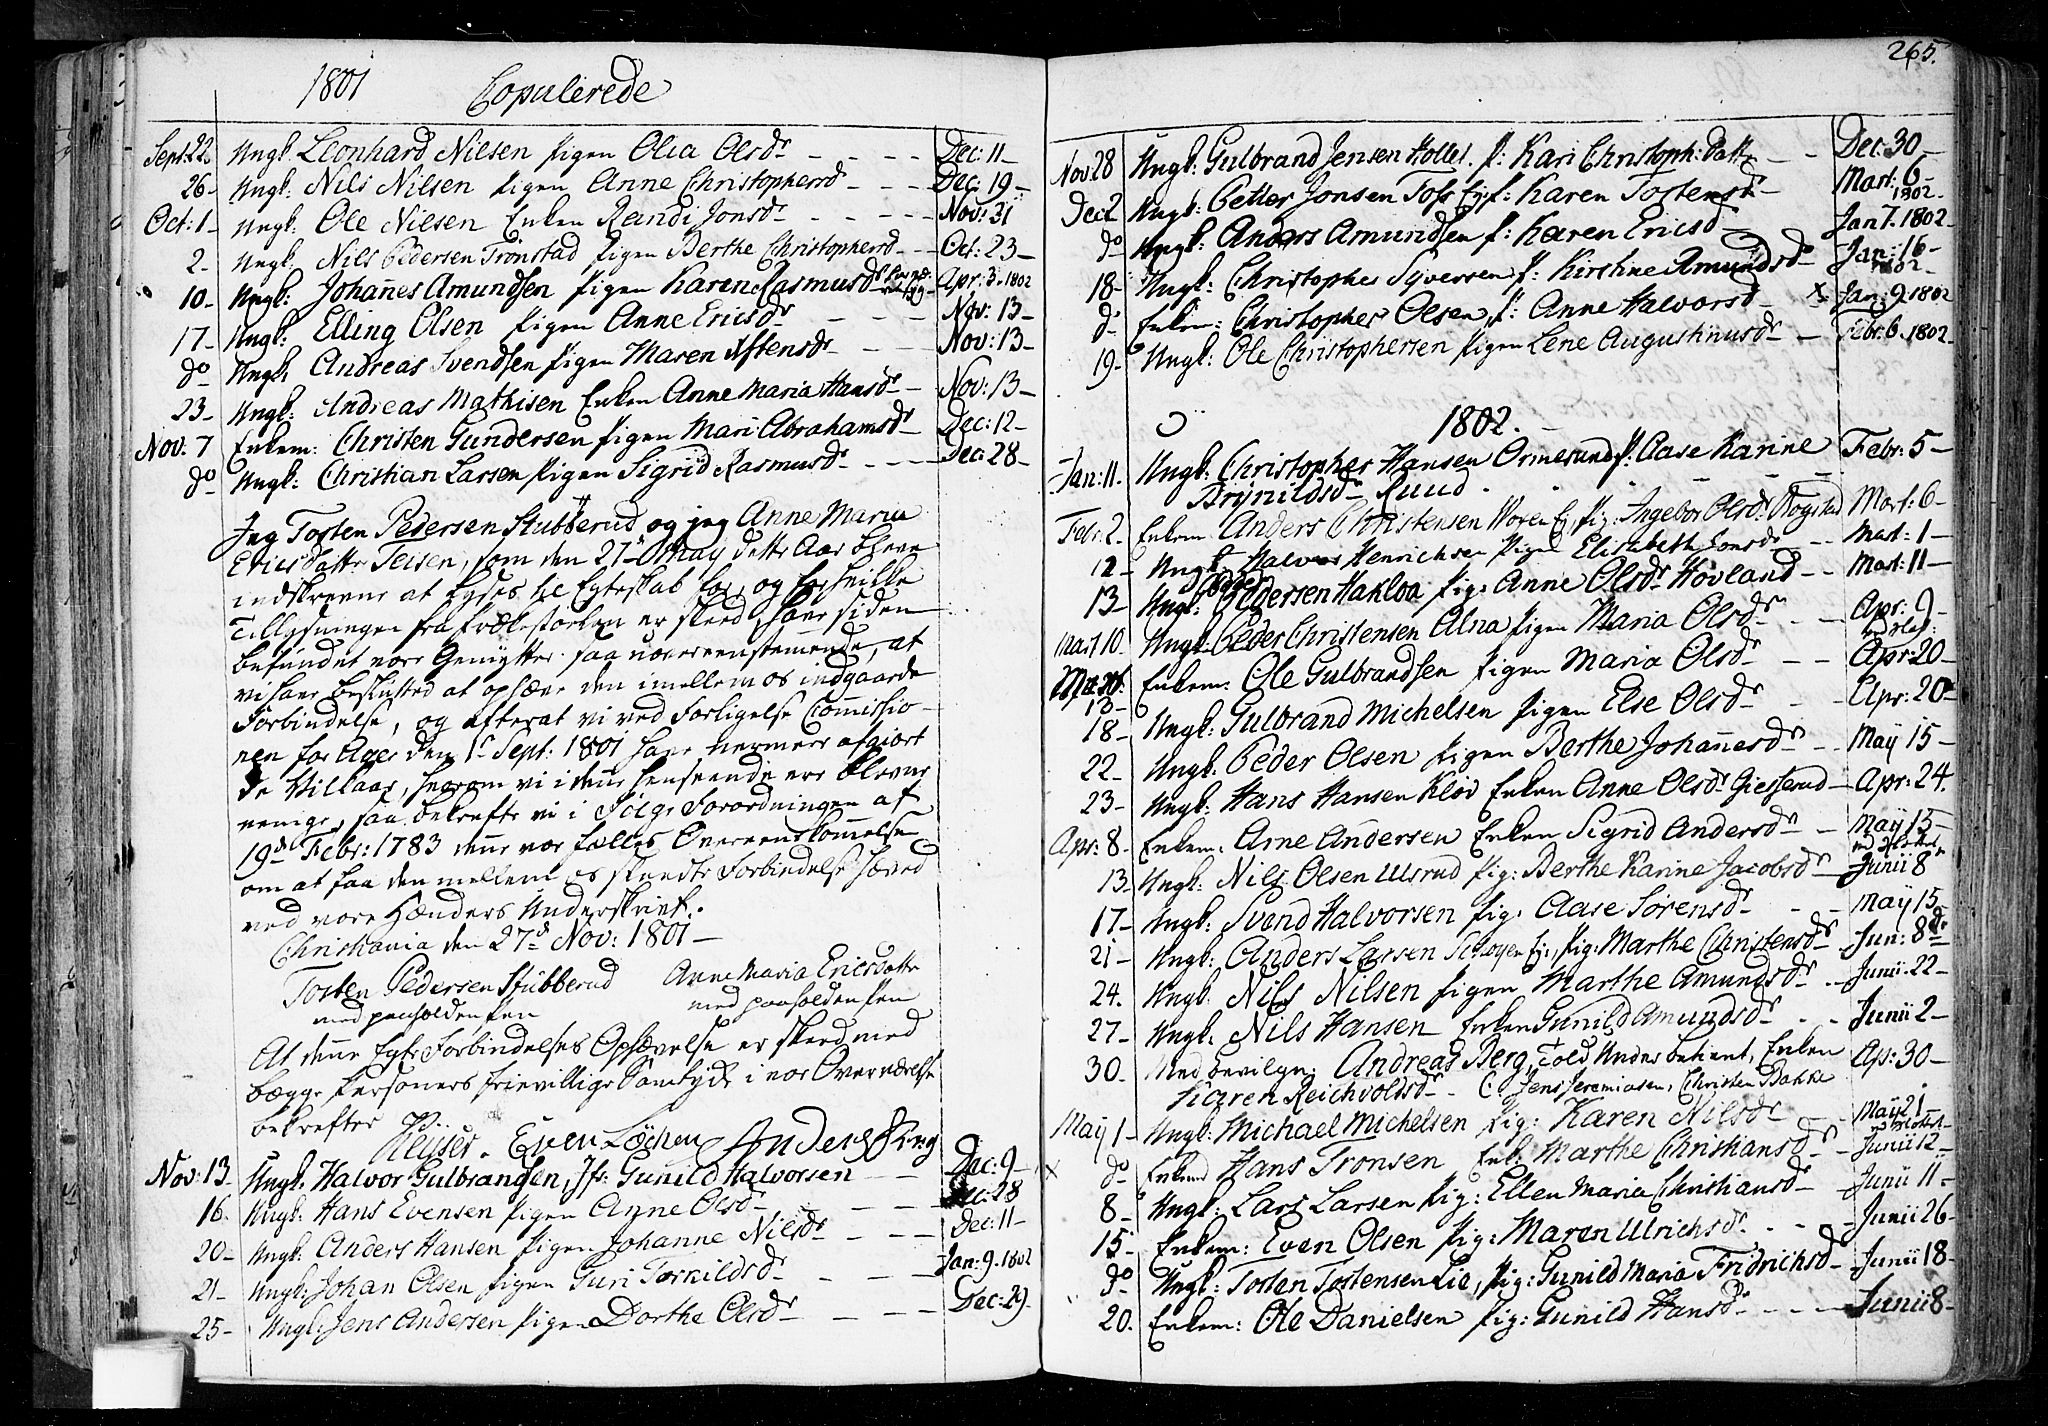 1801 Copulerede
Sept: 22. Ungk. Leonhard Nilsen Pigen Olia Olsdr Dec: 11
26 Ungk: Nils Nilsen Pigen Anne Christophersd Dec: 19
Oct: 1 Ungk: Ole Nilsen Enken Randi Jonsdr Nov: 21
2 Ungk. Nils Pedersen Trønstad Pigen Berthe Christophersd Oct: 23
10 Ungk: Johannes Amundsen Pigen Karen Rasmusdr Apr: 3. 1802
17 Ungk: Elling Olsen Pigen Anne Ericsdr Nov: 13
do Ungk. Andreas Svendsen Pigen Maren Aftensdr Nov: 13
23 Ungk: Andreas Mathisen Enken Anne Maria Hansdr Nov: 13
Nov. 7 Enkem: Christen Gundersen Pigen Mari Abrahamsdr Dec: 12
do Ungk: Christian Larsen Pigen Sigriid Rasmusdr Dec: 28
Jeg Torsten Pedersen Stubberud og jeg Anne Maria
Ericsdatter Teisen, som den 27de May dette Aar bleve
indskrevne at lyses til Egteskab for, og for hville
Tillysningen fra Prækestoelen er skeed, have siden
befundet vore Gemytter saa uovereenstemmende, at
vi have beslutted at ophæve den imellem os indgaaede
Forbindelse, og efterat vi ved Forligelse Commissio-
nen for Ager den 1ste Sept: 1801 have nermere afgiort
de Vilkaar, hvorom vi i denne henseende ere blevne
eenige, saa bekrefte vi i Følge Forordningen af
19de Febr: 1783 denne vor fælles Overeenskommelse
om at faa den mellem os skeedte Forbindelse hæved
ved vore Hænders Underskrivt.
Christiania den 27de Nov: 1801
Torsten Pedersen Stubberud Anne Maria Ericsdatter
med paaholden Pen med paaholden Pen
At denne Egte Forbindelses Ophævelse er skeed med
begge Personers frievillige Samtykke i vor Overværelse
bekrefter
Keyser. Even Løchen Anders
Nov: 13 Ungk. Halvor Gulbrandsen, Jfr: Gunild Halvorsen Dec: 9
16. Ungk: Hans Evensen Pigen Anne Olsd Dec: 28
20 Ungk: Anders Hansen Pigen Johanne Nilsdr Dec: 11
21 Ungk: Johan Olsen Pigen Guri Torkildsdr Jan: 9. 1802
25 Ungk: Jens Andersen Pigen Dorthe Olsdr Dec: 29
265.
Nov: 28 Ungk: Gulbrand Jensen Hollel. P: Kari Christoph: Datter Dec: 30
Dec 2 Ungk: Petter Jonsen Toss Eje P: Karen Torstensdr Mart: 6 1802
do Ungk: Anders Amundsen P: Karen Ericsd Jan 7. 1802
18 Ungk: Christopher Syversen P: Kirstine Amundsd Jan: 16 1802
do Enkem: Christopher Olsen, P: Anne Halvorsd x Jan: 9 1802
19 Ungk: Ole Christophersen Pigen Lene Augustinusdr Febr: 6. 1802
1802.
Jan: 11. Ungk: Christopher Hansen Ormesund P: Aase Karine Febr: 5
Brynildsdr Ruud.
Febr: 2 Enkem Anders Christensen Voxen Eje Pig: Ingebor Olsdr Rogstad Mart: 6
12 Ungk Halvor Henrichsen Pigen Elisabeth Jonsdr Mart: 1
13 Ungk: Peder Pedersen Hakloa Pig: Anne Olsdr Hovland Mart: 11
Mart 10 Ungk: Peder Christensen Alna Pigen Maria Olsdr Apr: 9
13 Enkem: Ole Gulbrandsen Pigen Maria Olsdr Apr: 20
18 Ungk: Gulbrand Michelsen Pigen Else Olsdr Apr: 20
22 Ungk: Peder Olsen Pigen Berthe Johannesdr May 15
23 Ungk: Hans Hansen Kløv Enken Anne Olsdr Giesserud Apr: 24.
Apr: 8 Enkem: Arne Andersen Enken Sigrid Andersdr May 15
13 Ungk: Nils Olsen Ulsrud Pig: Berthe Karine Jacobsdr Junii 8
17 Ungk: Svend Halvorsen Pig: Aase Sørensdr May 15
21 Ungk: Anders Larsen Schøyen Eje, Pig: Marthe Christensdr Jun: 8de
24. Ungk: Nils Nilsen Pigen Marthe Amundsdr Junii 22
27 Ungk: Nils Hansen Enken Gunild Amundsdr Junii 2
30. Med bevilgn: Andreas Berg, Told Under betient, Enken Apr: 30
Karen Reichvoldsdr C: Jens Jeremiasen, Christen Bakke
May 1 Ungk: Michael Michelsen Pig: Karen Nilsdr May 21
x do Enkem Hans Tronsen Enk: Marthe Christiansdr Junii 12
8 Ungk: Lars Larsen Pig: Ellen Maria Christiansdr Junii 11
15 Enkem: Even Olsen Pig: Maren Ulrichsdr Junii 26
do Ungk: Torsten Torstensen Lie, Pig: Gunild Maria Fridrichsd Junii 18
20. Enkem: Ole Danielsen Pig: Gunild Hansdr Junii 8